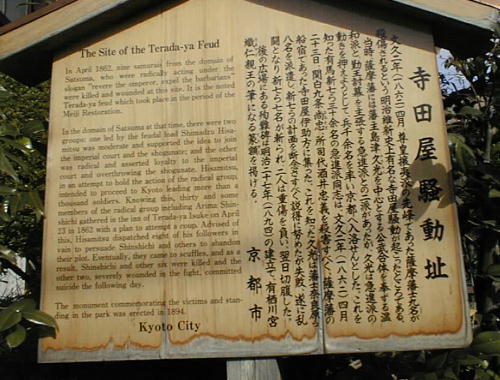 The Site of the Terada-ya Feud
In April 1862, nine samurai from the domain of
Satsuma, who were radically acting under the
slogan "revere the emperor, expel the barbarians"
were killed and wounded at this site. It is the noted
Terada-ya feud which took place in the period of the
Meiji Restoration.
In the domain of Satsuma at that time, there were two
groups: one led by the feudal load Shimadzu Hisa-
mitsu was moderate and supported the idea to join
the imperial court and the shogunate; and the other
was radical and asserted loyalty to the imperial
court and overthrowing the shogunate. Hisamitsu,
in an attempt to hold the action of the radical group,
intended to proceed to Kyoto leading more than a
thousand soldiers. Knowing this, thirty and some
members of the radical group including Arima Shin-
shichi gathered in the inn of Terada-ya Isuke on April
23 in 1862 with a plan to attempt a coup. Advised of
this, Hisamitsu dispatched eight of his followers in
vain to persuade Shinshichi and others to abandon
their plot. Eventually, they came to scuffles, and as a
result, Shinshichi and other six were killed and the
other two, severely wounded in the fight, committed
suicide the following day.
The monument commemorating the victims and stan-
ding in the park was erected in 1894.
Kyoto City
寺田屋騒動址
文久二年(一八六二)四月、尊皇攘夷派の先峰であった薩摩藩士九名が
殺傷されるという明治維新史上有名な寺田屋騒動が起こったところである。
当時、薩摩藩には藩主島津久光を中心とする公武合体を奉ずる温
和派と、勤王討幕を主張する急進派との二派があったが、久光は急進派の
動きを押えようとして兵千余名を率い、京都へ入洛せんとした。これを
知った有馬新七等三十余名の急進派同志は、文久二年(一八六二)四月
二十三日、関白九条尚忠、所司代酒井忠義を殺害すべく、薩摩藩の
船宿であった寺田屋伊助方に集った。これを知った久光は藩士奈良原ら
八名を派遣し、新七らの計画を断念すべく説得に努めたが失敗、遂に乱
闘となり、新七ら七名が斬られ、二人は重傷を負い、翌日切腹した。
後の広場にある殉難碑は明治二十七年(一八九四)の建立で、有栖川宮
熾仁親王の筆になる篆額を掲げる。
京都市